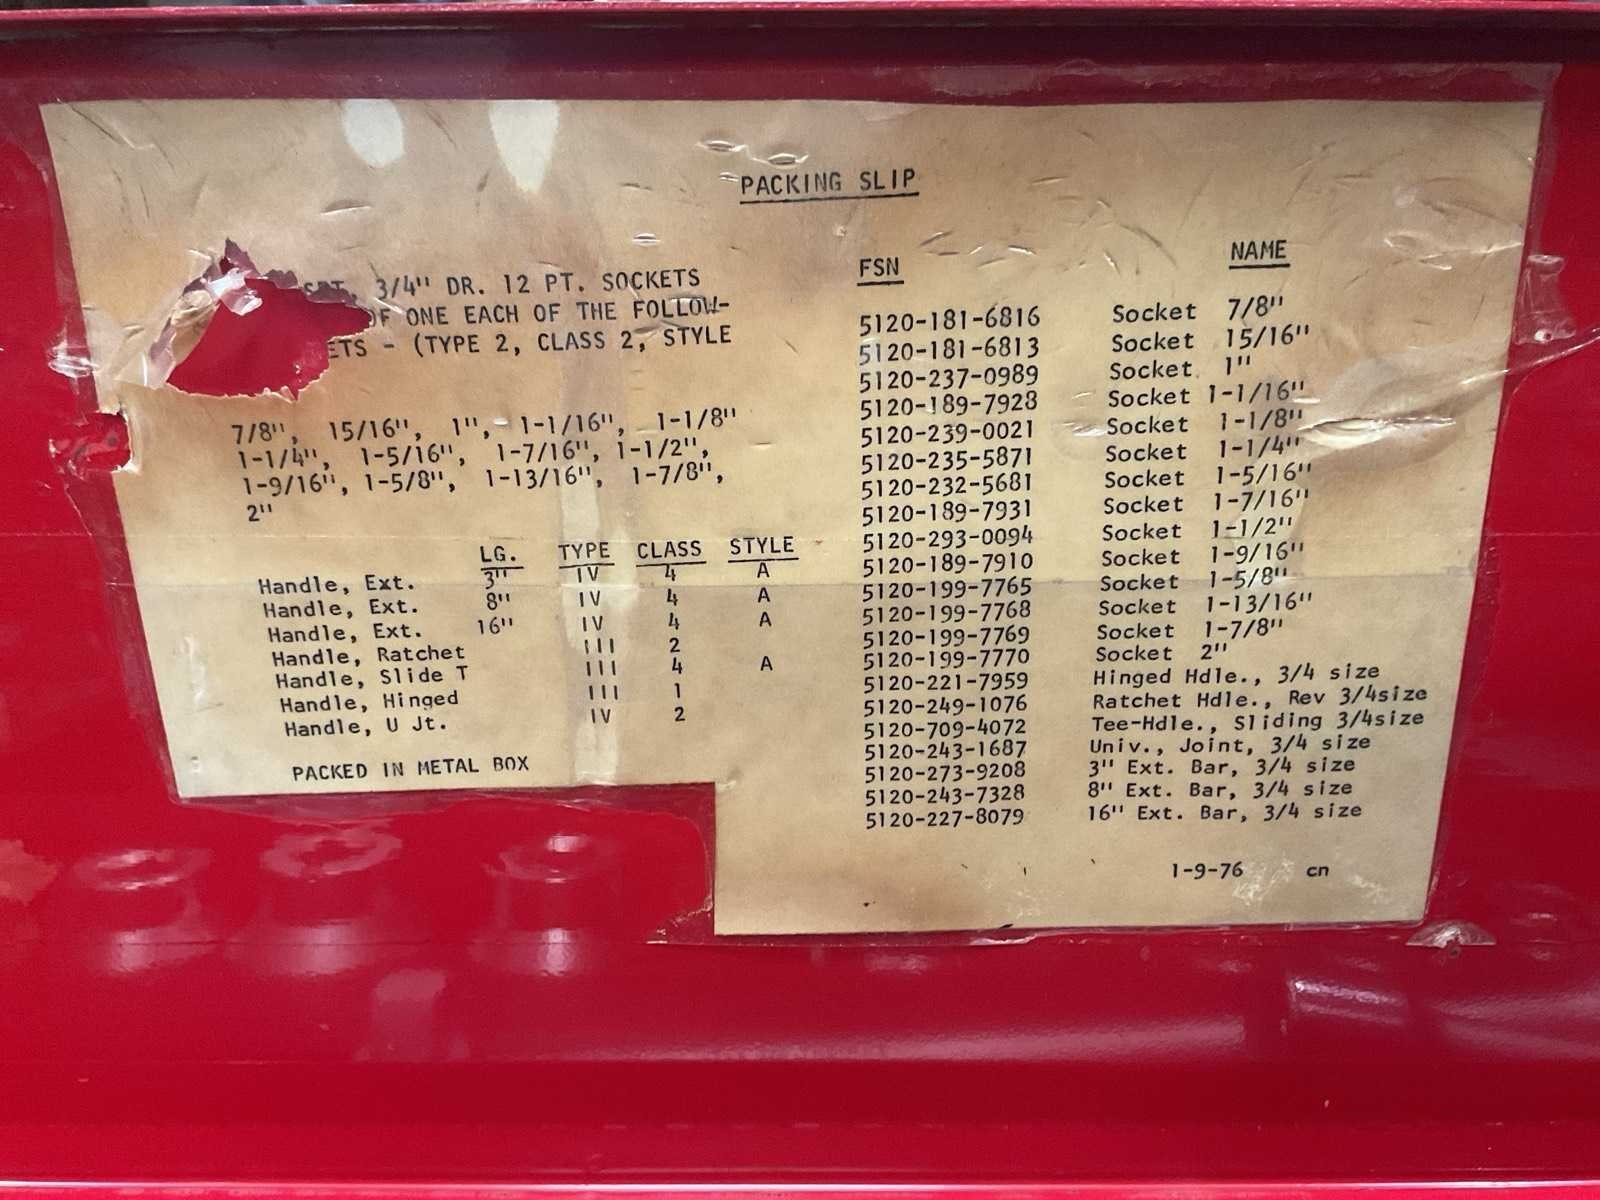 PACKING SLIP
SET, 3/4" DR. 12 PT. SOCKETS
OF ONE EACH OF THE FOLLOW-
ETS - (TYPE 2, CLASS 2, STYLE
7/8", 15/16", 1", 1-1/16", 1-1/8"
1-1/4", 1-5/16", 1-7/16", 1-1/2",
1-9/16", 1-5/8", 1-13/16", 1-7/8",
2"
LG. TYPE CLASS STYLE
Handle, Ext. 3" IV 4 A
Handle, Ext. 8" IV 4 A
Handle, Ext. 16" IV 4 A
Handle, Ratchet III 2
Handle, Slide T III 4 A
Handle, Hinged III 1
Handle, U Jt. IV 2
PACKED IN METAL BOX
FSN NAME
5120-181-6816 Socket 7/8"
5120-181-6813 Socket 15/16"
5120-237-0989 Socket 1"
5120-189-7928 Socket 1-1/16"
5120-239-0021 Socket 1-1/8"
5120-235-5871 Socket 1-1/4"
5120-232-5681 Socket 1-5/16"
5120-189-7931 Socket 1-7/16"
5120-293-0094 Socket 1-1/2"
5120-189-7910 Socket 1-9/16"
5120-199-7765 Socket 1-5/8"
5120-199-7768 Socket 1-13/16"
5120-199-7769 Socket 1-7/8"
5120-199-7770 Socket 2"
5120-221-7959 Hinged Hdle., 3/4 size
5120-249-1076 Ratchet Hdle., Rev 3/4size
5120-709-4072 Tee-Hdle., Sliding 3/4size
5120-243-1687 Univ., Joint, 3/4 size
5120-273-9208 3" Ext. Bar, 3/4 size
5120-243-7328 8" Ext. Bar, 3/4 size
5120-227-8079 16" Ext. Bar, 3/4 size
1-9-76 cn